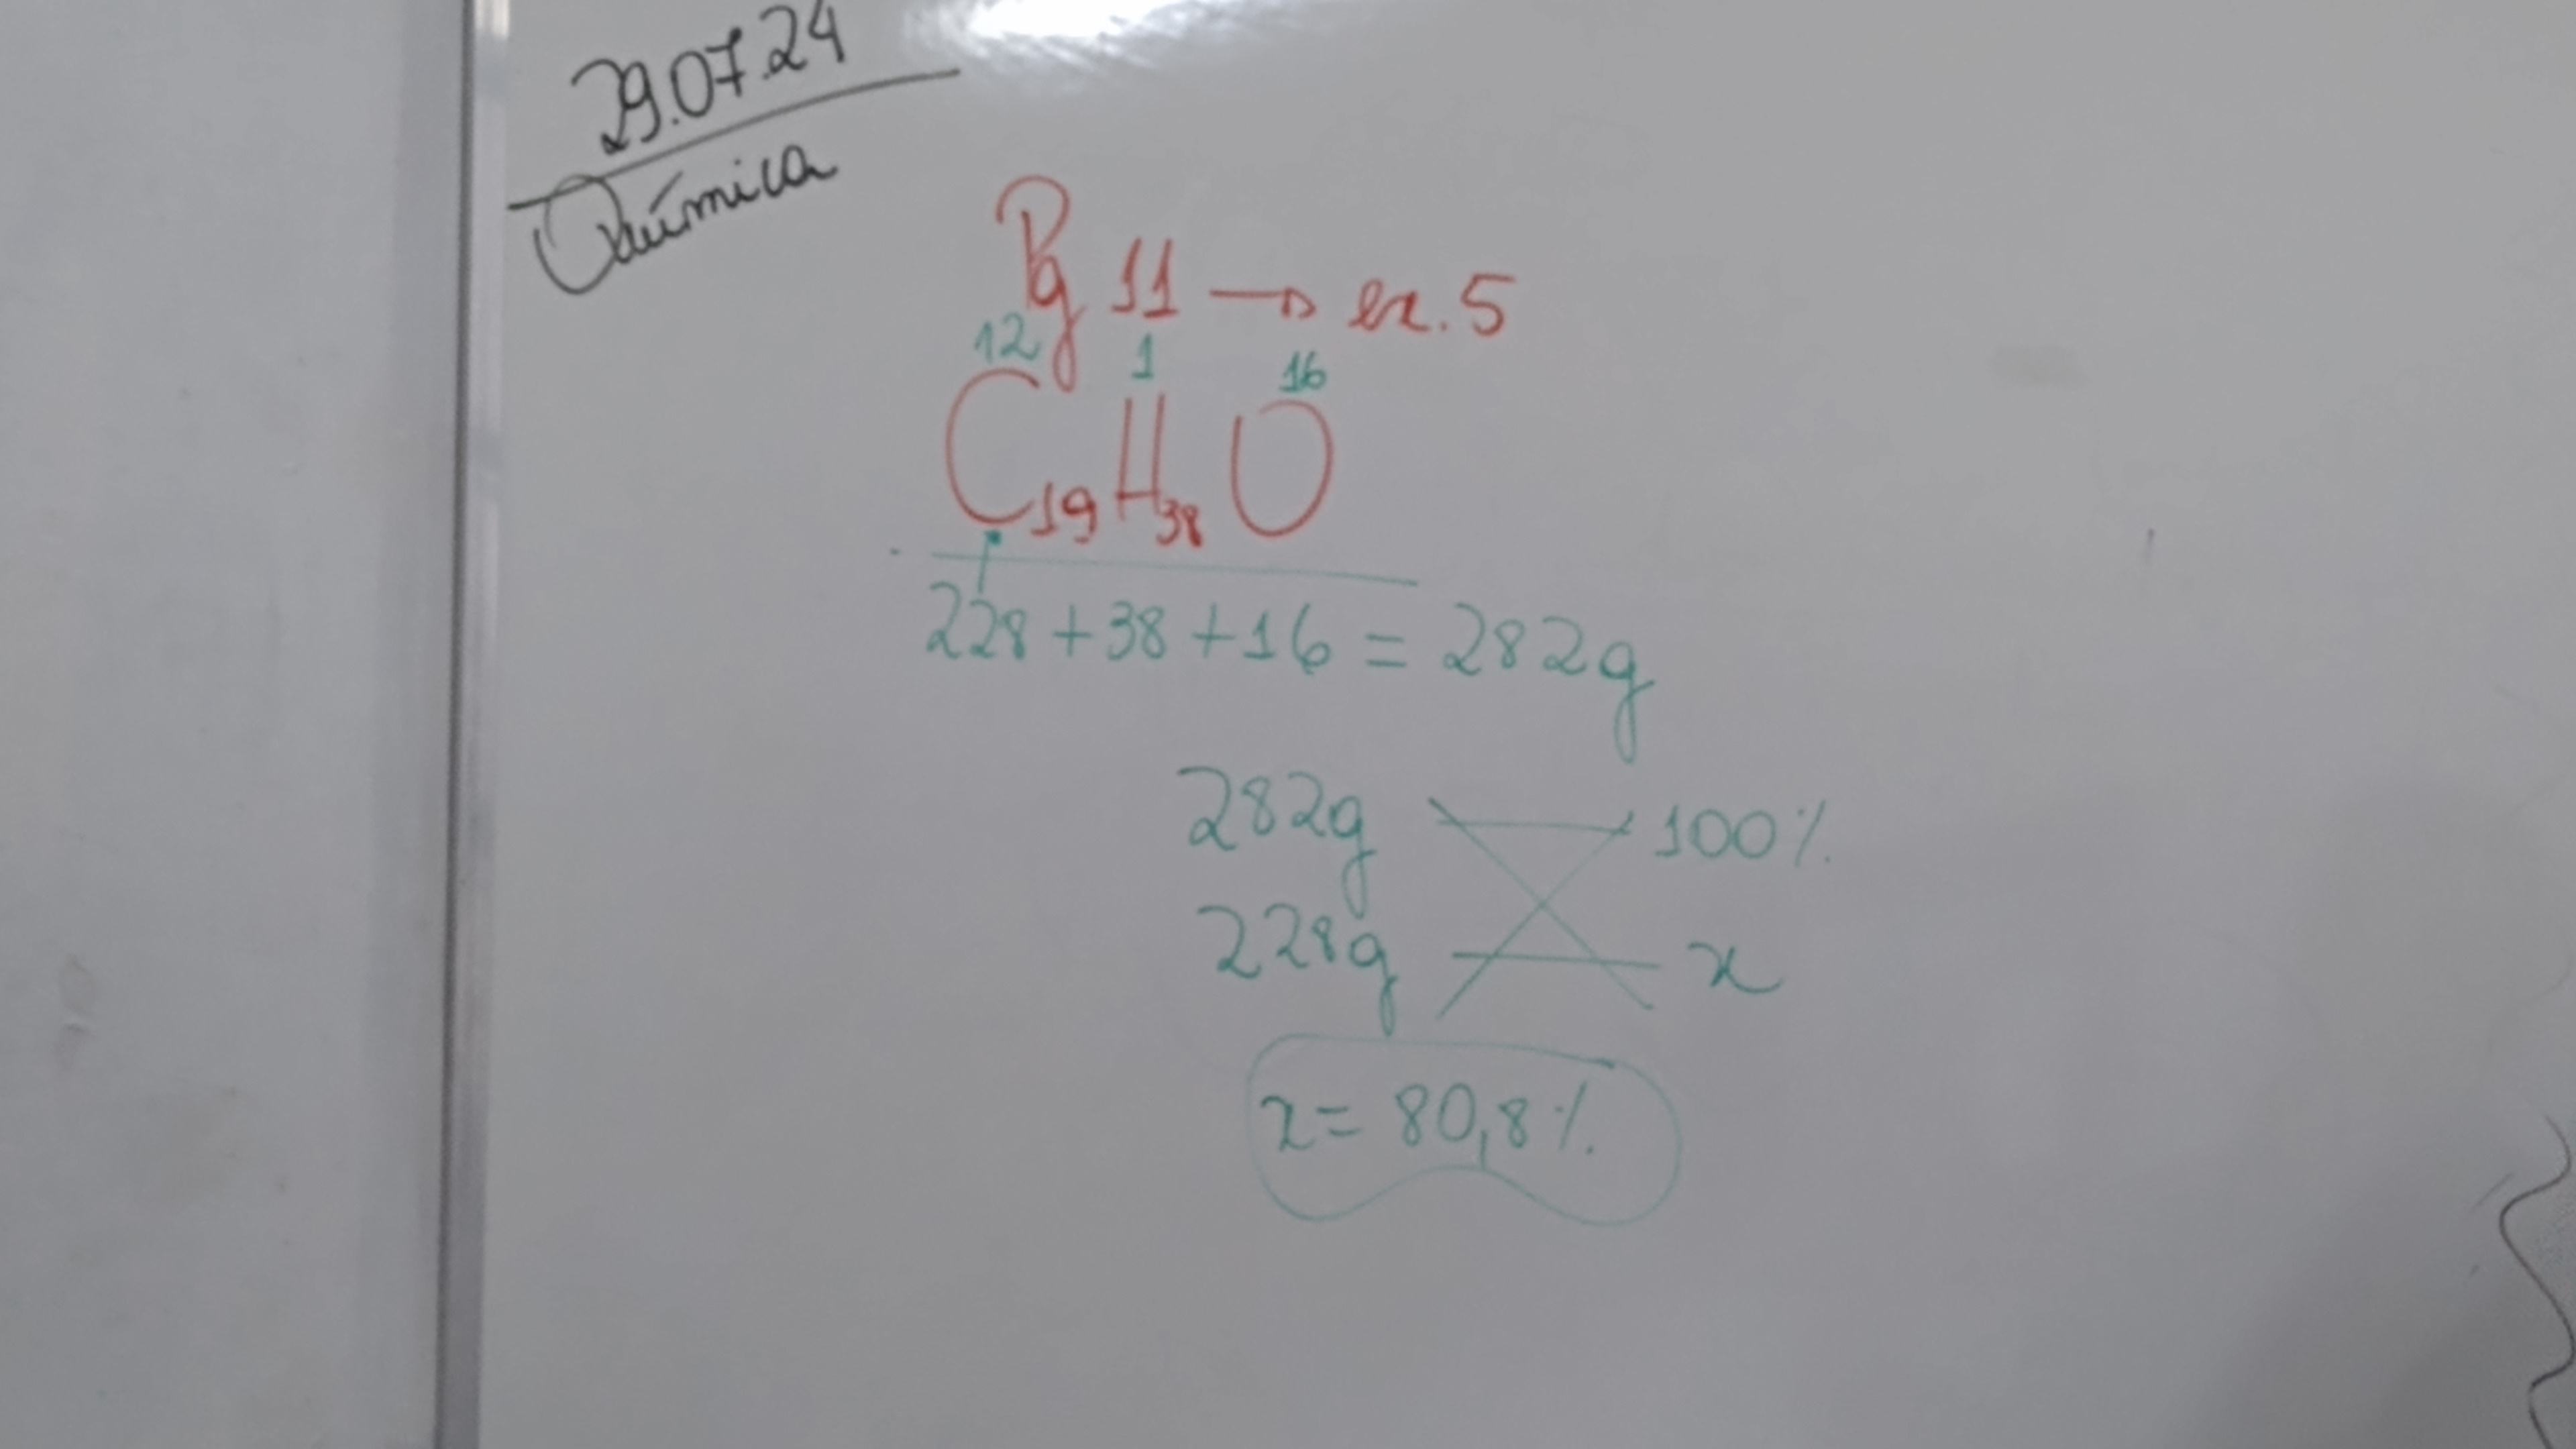 29.07.24
Química
Pg 11 → ex. 5
12 1 16
C₁₉H₃₈O
228 + 38 + 16 = 282g
282g 100%
228g x
x = 80,8%